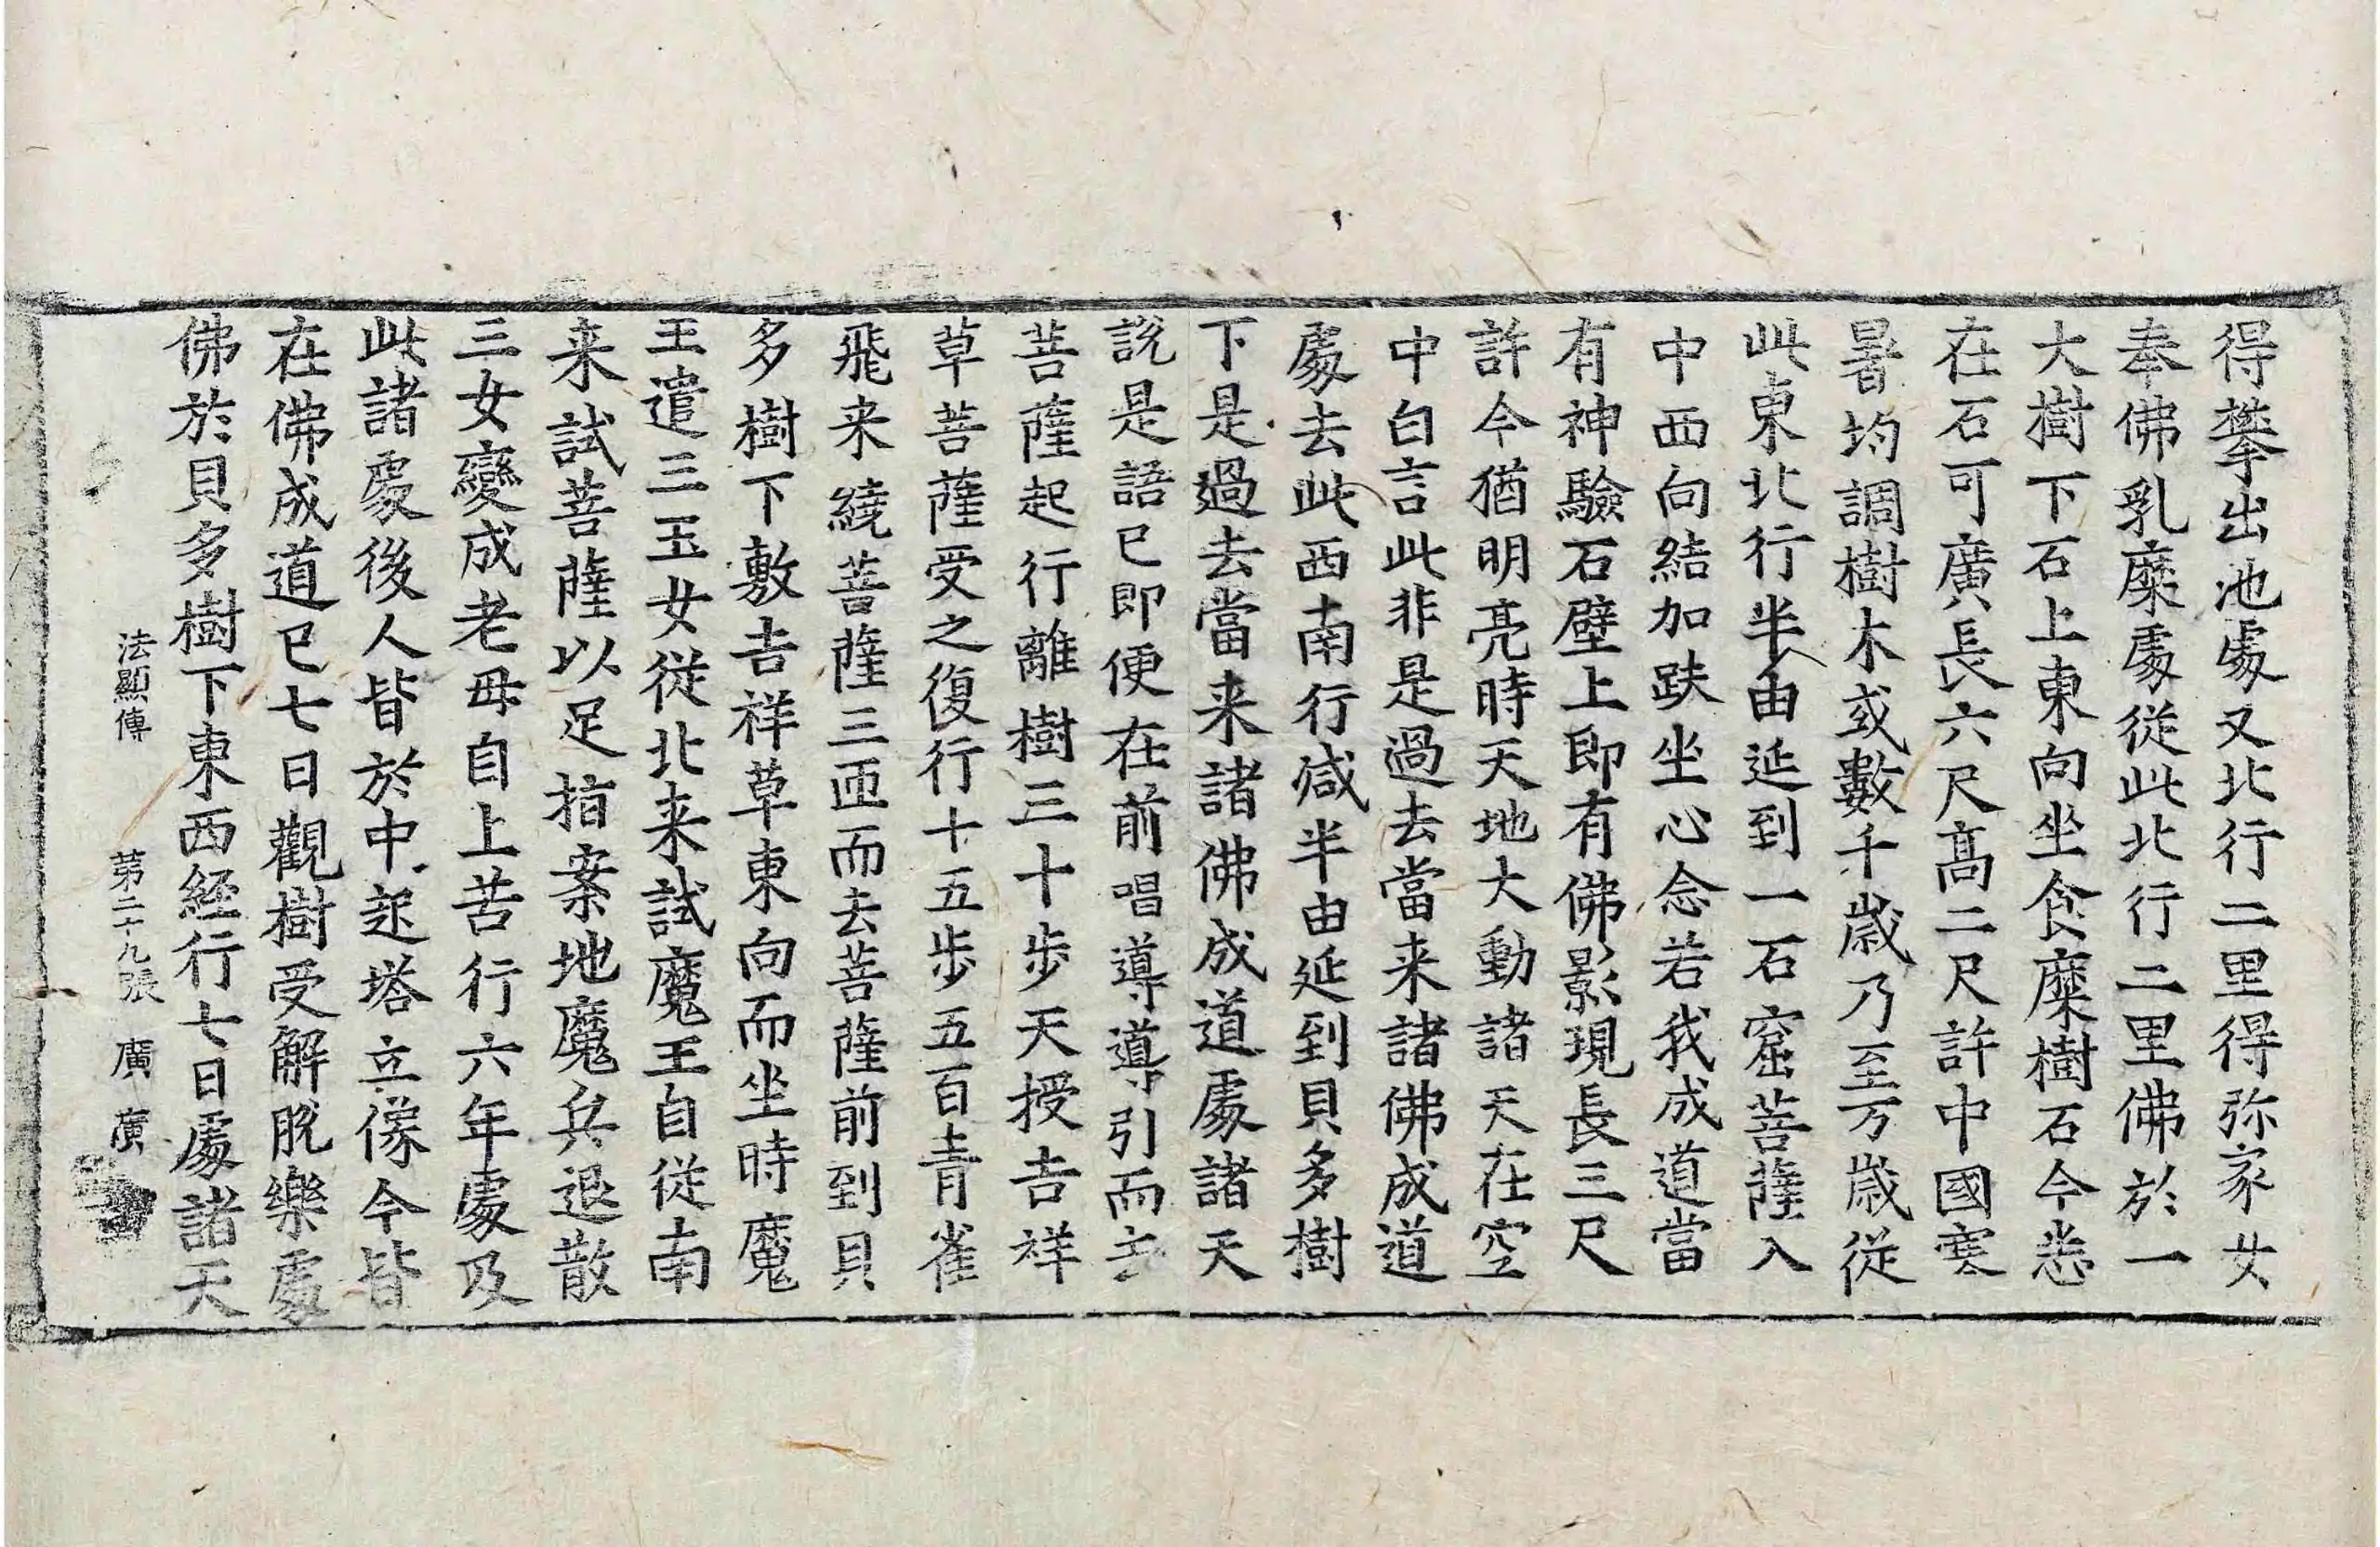 得攀出池處又北行二里得弥家女
奉佛乳糜處從此北行二里佛於一
大樹下石上東向坐食糜樹石今悉
在石可廣長六尺高二尺許中國寒
暑均調樹木或數千歲乃至万歲從
此東北行半由延到一石窟菩薩入
中西向結加趺坐心念若我成道當
有神驗石壁上即有佛影現長三尺
許今猶明亮時天地大動諸天在空
中白言此非是過去當来諸佛成道
處去此西南行减半由延到貝多樹
下是過去當来諸佛成道處諸天
說是語已即便在前唱導導引而去
菩薩起行離樹三十步天授吉祥
草菩薩受之復行十五步五百青雀
飛来繞菩薩三匝而去菩薩前到貝
多樹下敷吉祥草東向而坐時魔
王遣三玉女從北来試魔王自從南
来試菩薩以足指案地魔兵退散
三女變成老母自上苦行六年處及
此諸處後人皆於中起塔立像今皆
在佛成道已七日觀樹受解脫樂處
佛於貝多樹下東西経行七日處諸天
法顯傳 第二十九張 廣 廣